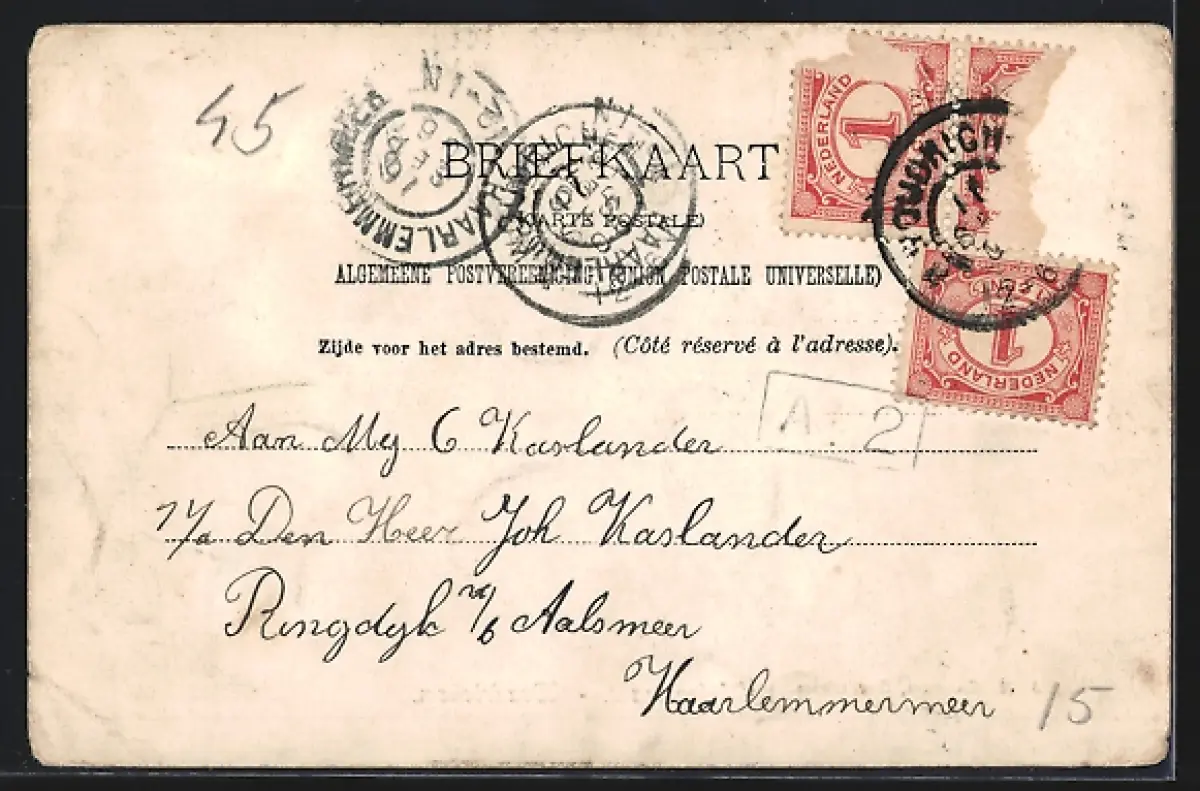 45
BRIEFKAART
(CARTE POSTALE)
ALGEMEENE POSTVEREENIGING (UNION POSTALE UNIVERSELLE)
Zijde voor het adres bestemd. (Côté réservé à l'adresse).
NEDERLAND
1
1 NEDERLAND
1
A 2
Aan Mej C Kaslander
Den Heer Joh Kaslander
Ringdyk Aalsmeer
Haarlemmermeer
15